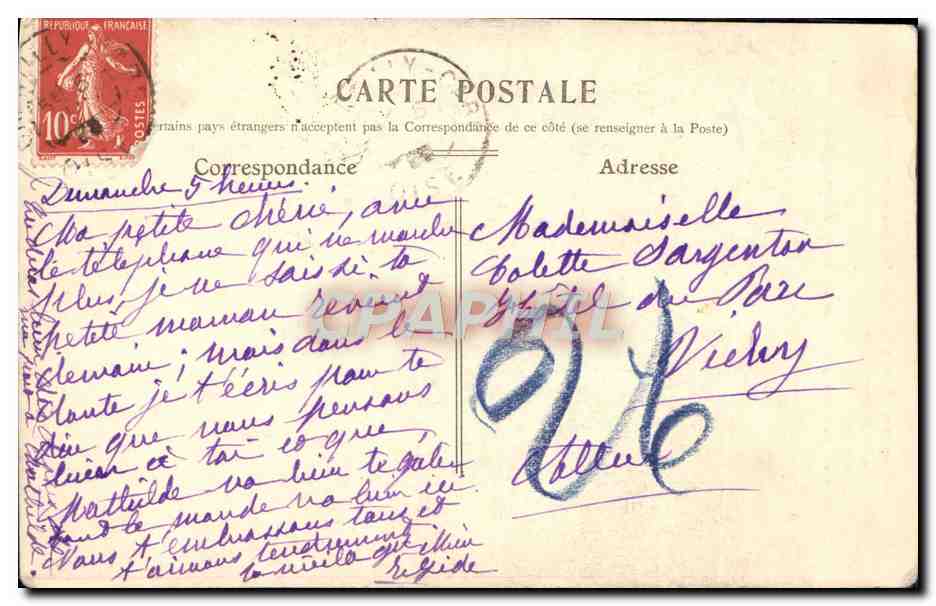 RÉPUBLIQUE FRANÇAISE
10c POSTES
CARTE POSTALE
ertains pays étrangers n'acceptent pas la Correspondance de ce côté (se renseigner à la Poste)
Correspondance
Adresse
OISE
Dimanche 5 heures
Ma petite chérie, avec
le téléphone qui ne marche
plus, je ne sais si ta
petite maman revient
demain ; mais dans le
doute je t'écris pour te
dire que nous pensons
bien à toi et que
Mathilde va bien te gâter
tout le monde va bien ici
Nous t'embrassons tous et
t'aimons tendrement
à Mathilde.
Mademoiselle
Colette Sargenton
Hôtel du Parc
Vichy
Allier
26
CPAPHIL